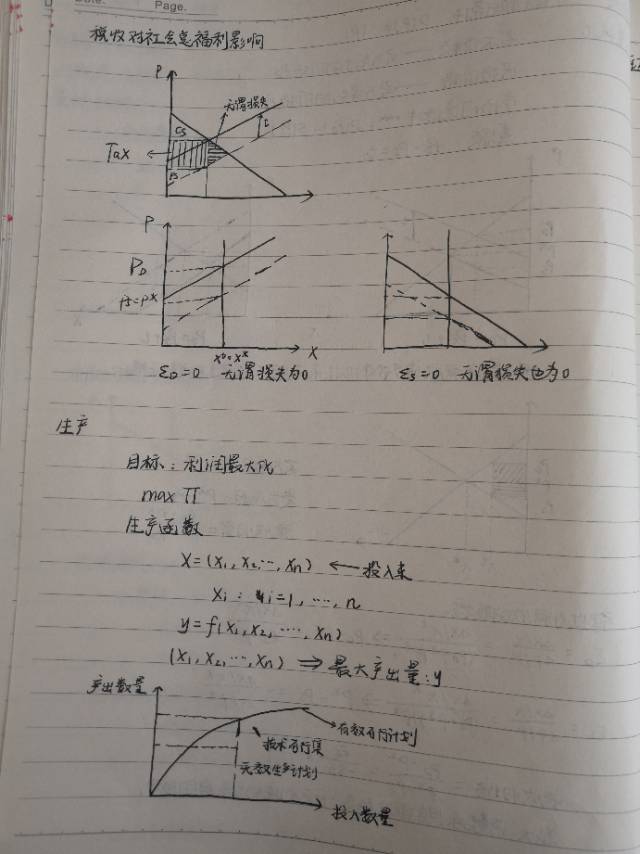 Date.
Page.
税收对社会总福利影响
P
无谓损失
CS
t
Tax
PS
P
P_D
P_S=P*
X^0=X*
X
ε_D=0 无谓损失为0
ε_S=0 无谓损失也为0
生产
目标:利润最大化
max π
生产函数
X=(x₁,x₂…,xₙ) ← 投入束
xᵢ: i=1,…,n
y=f(x₁,x₂,…,xₙ)
(x₁,x₂,…,xₙ) ⇒ 最大产出量:y
产出数量
有效可行计划
技术可行集
无效生产计划
投入数量